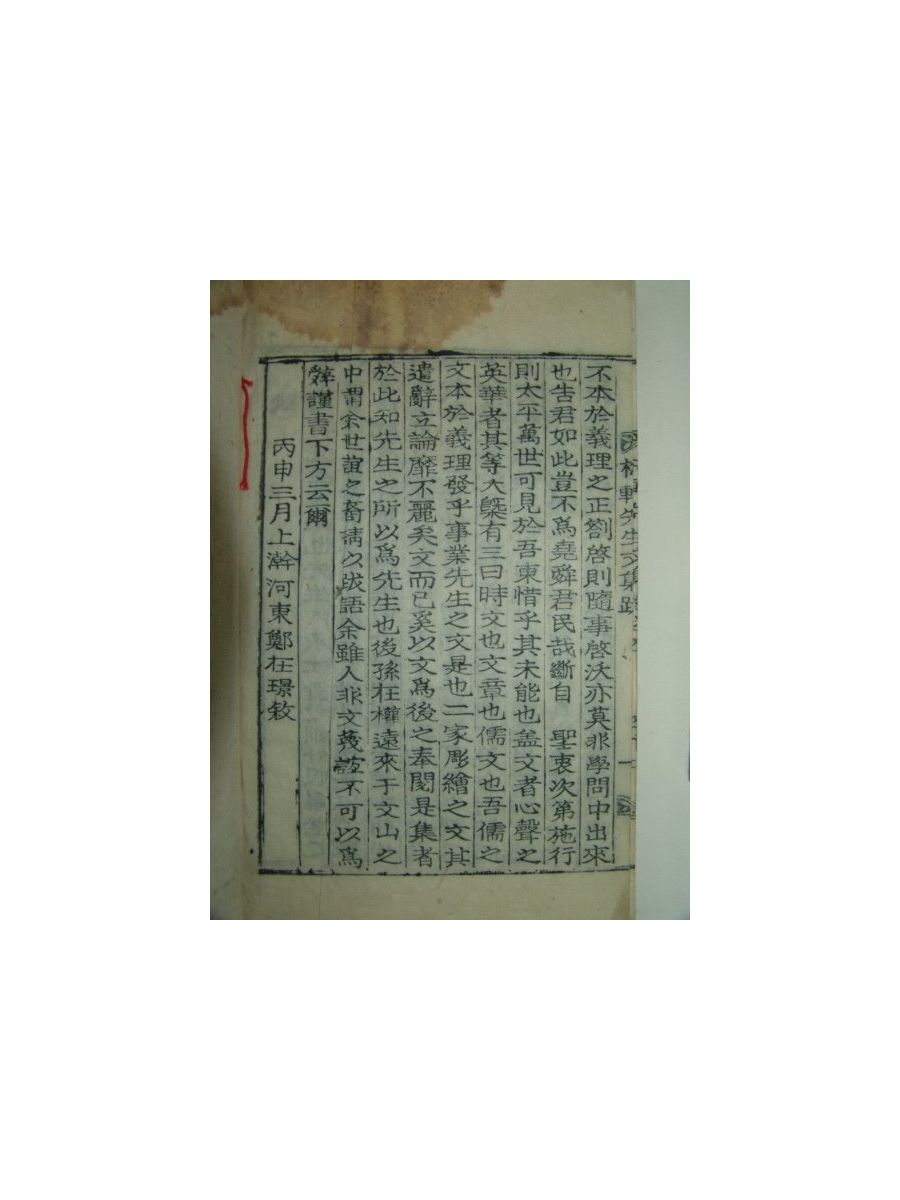 軒先生文集跋
不本於義理之正劄啓則隨事啓沃亦莫非學問中出來
也告君如此豈不爲堯舜君民哉斷自 聖衷次第施行
則太平萬世可見於吾東惜乎其未能也盖文者心聲之
英華者其等大槩有三曰時文也文章也儒文也吾儒之
文本於義理發乎事業先生之文是也二家彫繪之文其
遣辭立論靡不麗矣文而已奚以文爲後之奉閱是集者
於此知先生之所以爲先生也後孫枉權遠來于文山之
中謂余世誼之裔請以跋語余雖人非文蔑誼不可以爲
辤謹書下方云爾
丙申三月上澣河東鄭在璟敘